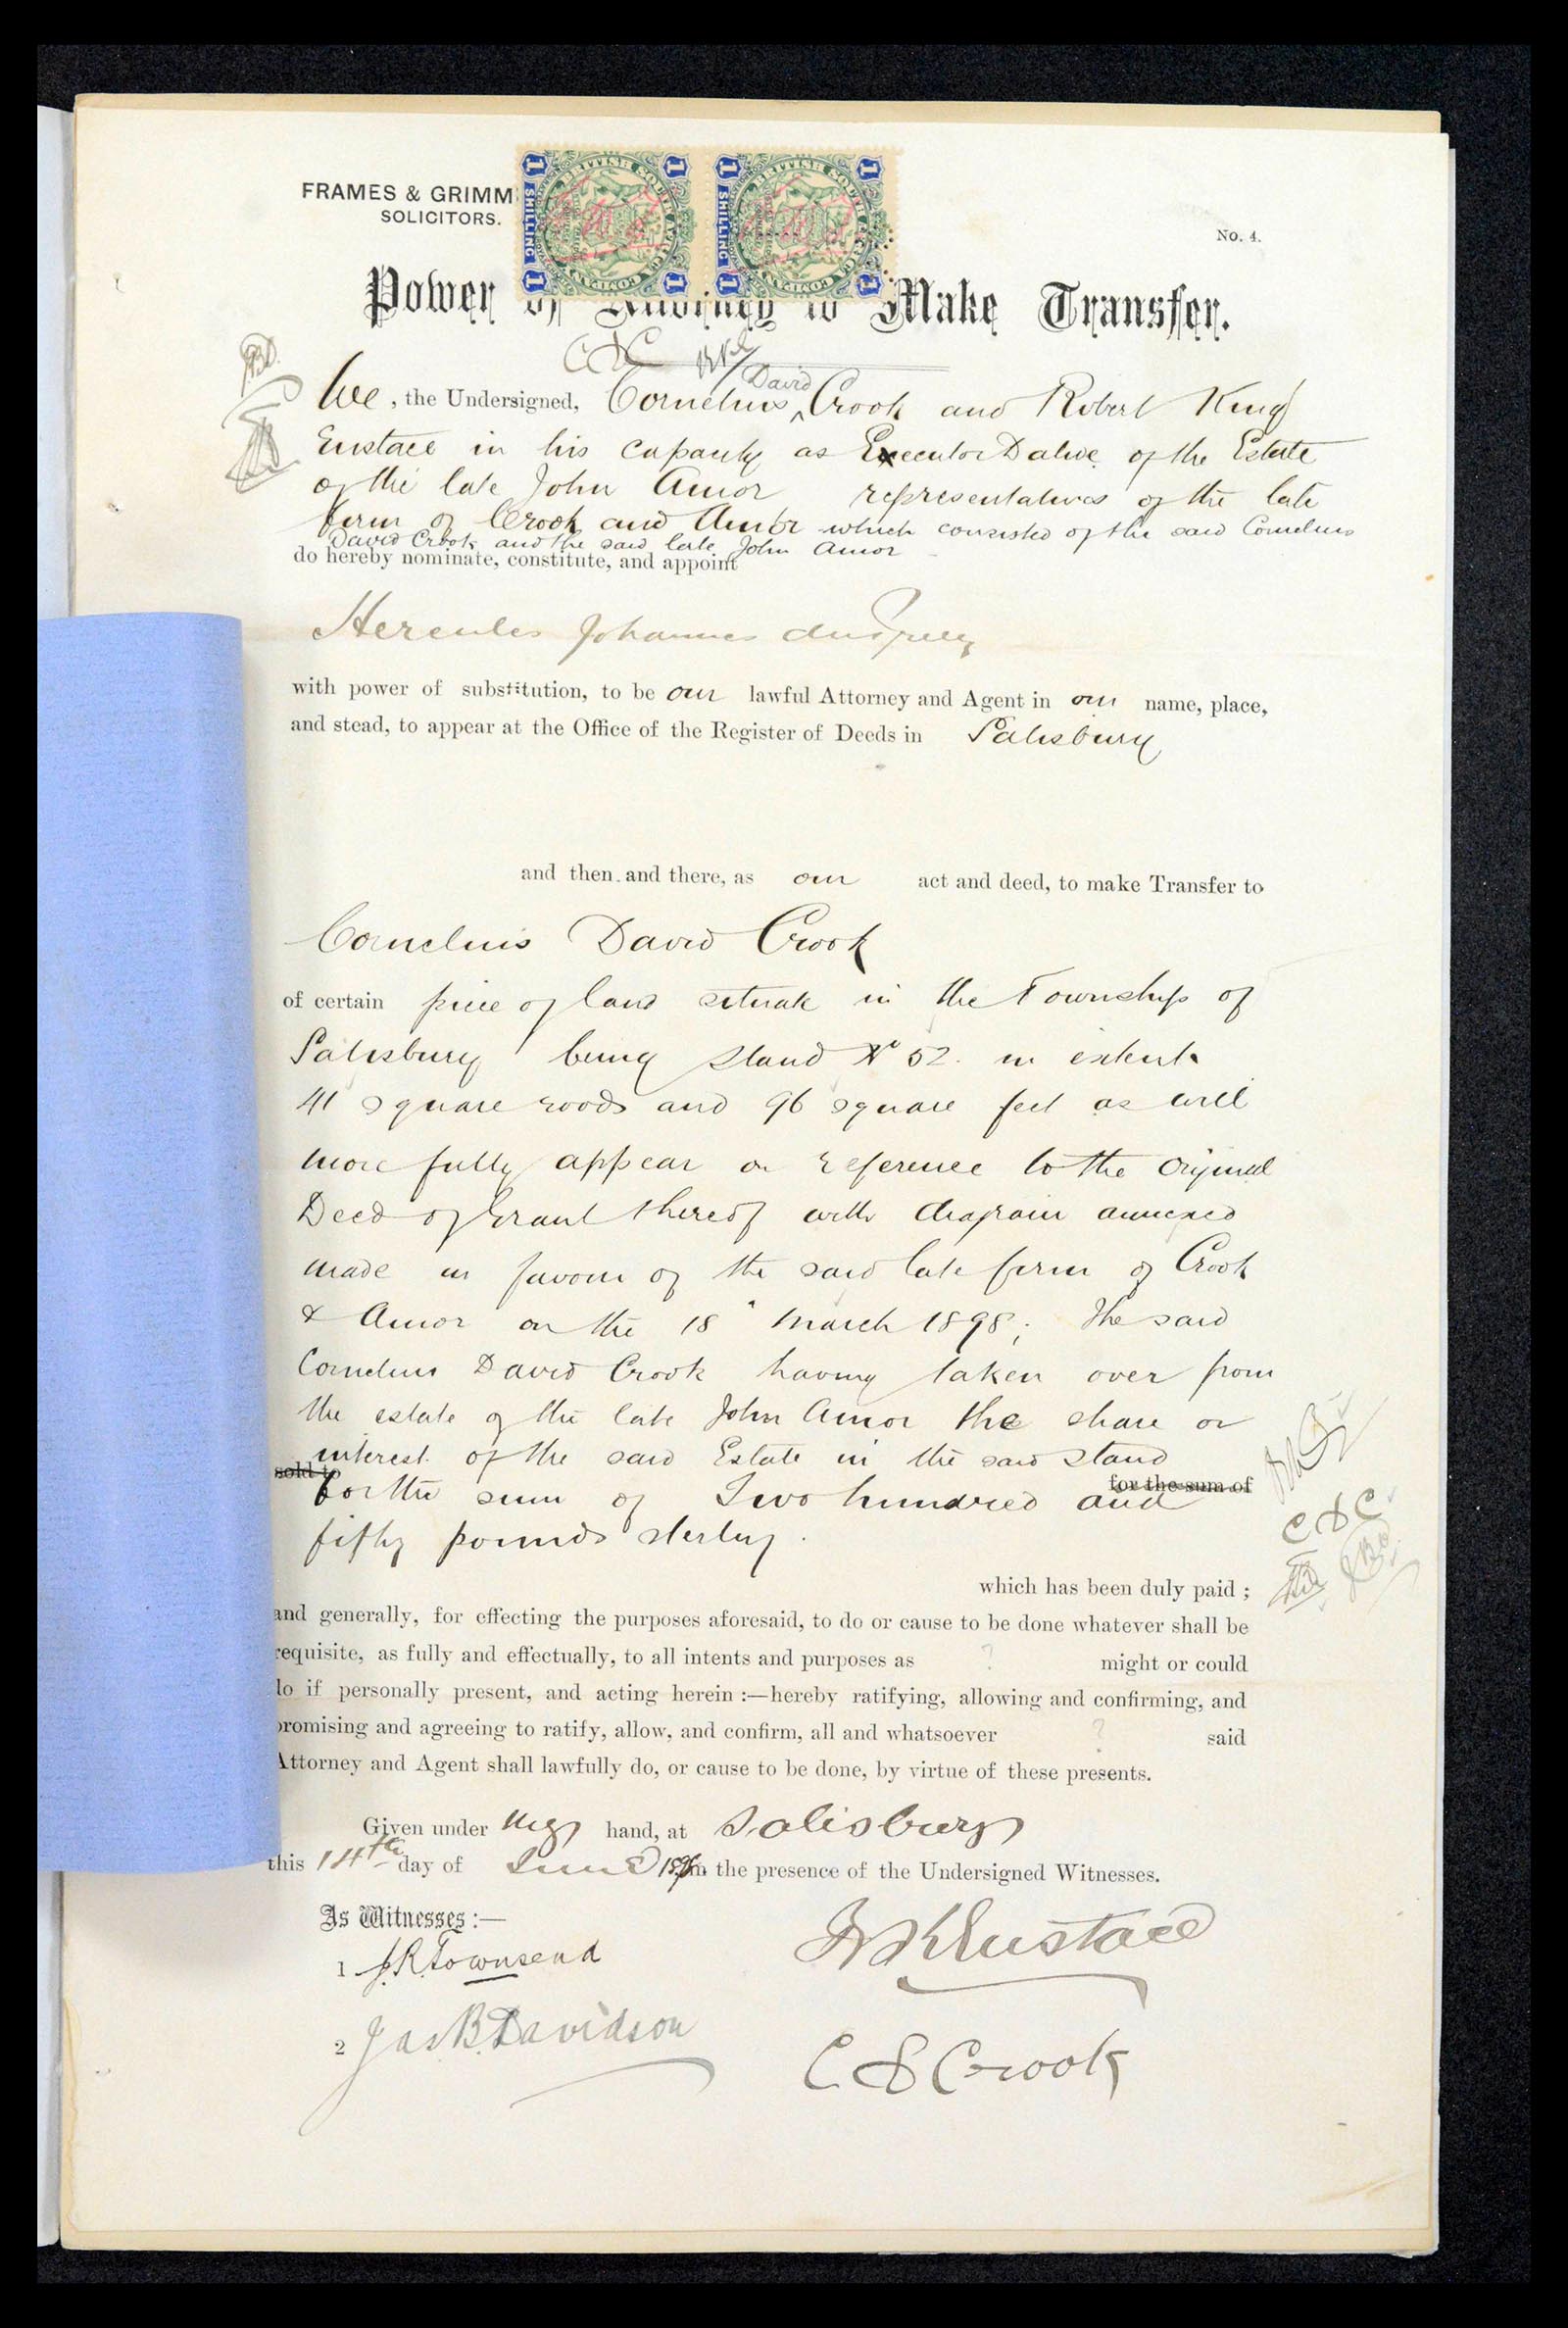 FRAMES & GRIMM
SOLICITORS.
1 BRITISH SOUTH AFRICA COMPANY 1 SHILLING 1
1 BRITISH SOUTH AFRICA COMPANY 1 SHILLING 1
No. 4.
Power of Attorney to Make Transfer.
CDC RKE
David
We, the Undersigned, Cornelius ^ Crook and Robert King
Eustace in his capacity as Executor Dative of the Estate
of the late John Amor representatives of the late
firm of Crook and Amor which consisted of the said Cornelius
David Crook and the said late John Amor
do hereby nominate, constitute, and appoint
Hercules Johannes du Preez
with power of substitution, to be our lawful Attorney and Agent in our name, place,
and stead, to appear at the Office of the Register of Deeds in Salisbury
and then and there, as our act and deed, to make Transfer to
Cornelius David Crook
of certain piece of land situate in the Township of
Salisbury being Stand No 52 in extent
41 square roods and 96 square feet as will
more fully appear on reference to the original
Deed of Grant thereof with diagram annexed
made in favour of the said late firm of Crook
& Amor on the 18" March 1898; The said
Cornelius David Crook having taken over from
the estate of the late John Amor the share or
interest of the said Estate in the said stand
sold to for the sum of
for the sum of Two hundred and
fifty pounds sterling.
CDC
which has been duly paid ;
and generally, for effecting the purposes aforesaid, to do or cause to be done whatever shall be
requisite, as fully and effectually, to all intents and purposes as ? might or could
do if personally present, and acting herein :—hereby ratifying, allowing and confirming, and
promising and agreeing to ratify, allow, and confirm, all and whatsoever ? said
Attorney and Agent shall lawfully do, or cause to be done, by virtue of these presents.
Given under my hand, at Salisbury
this 14th day of June 1898 in the presence of the Undersigned Witnesses.
As Witnesses :—
1 J.R. Townsend
R K Eustace
2 Jas B. Davidson
C D Crook